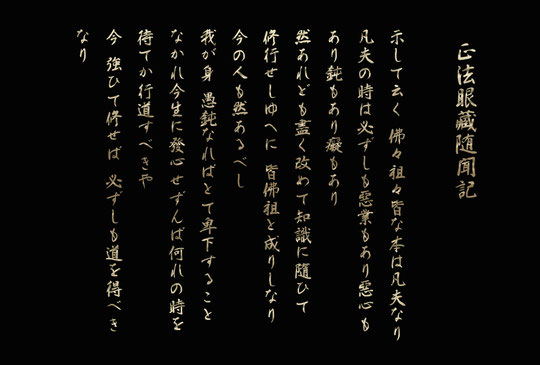 正法眼藏随聞記
示して云く 佛々祖々皆な本は凡夫なり
凡夫の時は必ずしも惡業もあり惡心も
あり鈍もあり癡もあり
然あれども盡く改めて知識に隨ひて
修行せしゆへに 皆佛祖と成りしなり
今の人も然あるべし
我が身 愚鈍なればとて卑下すること
なかれ今生に發心せずんば何れの時を
待てか行道すべきや
今 強ひて修せば 必ずしも道を得べき
なり